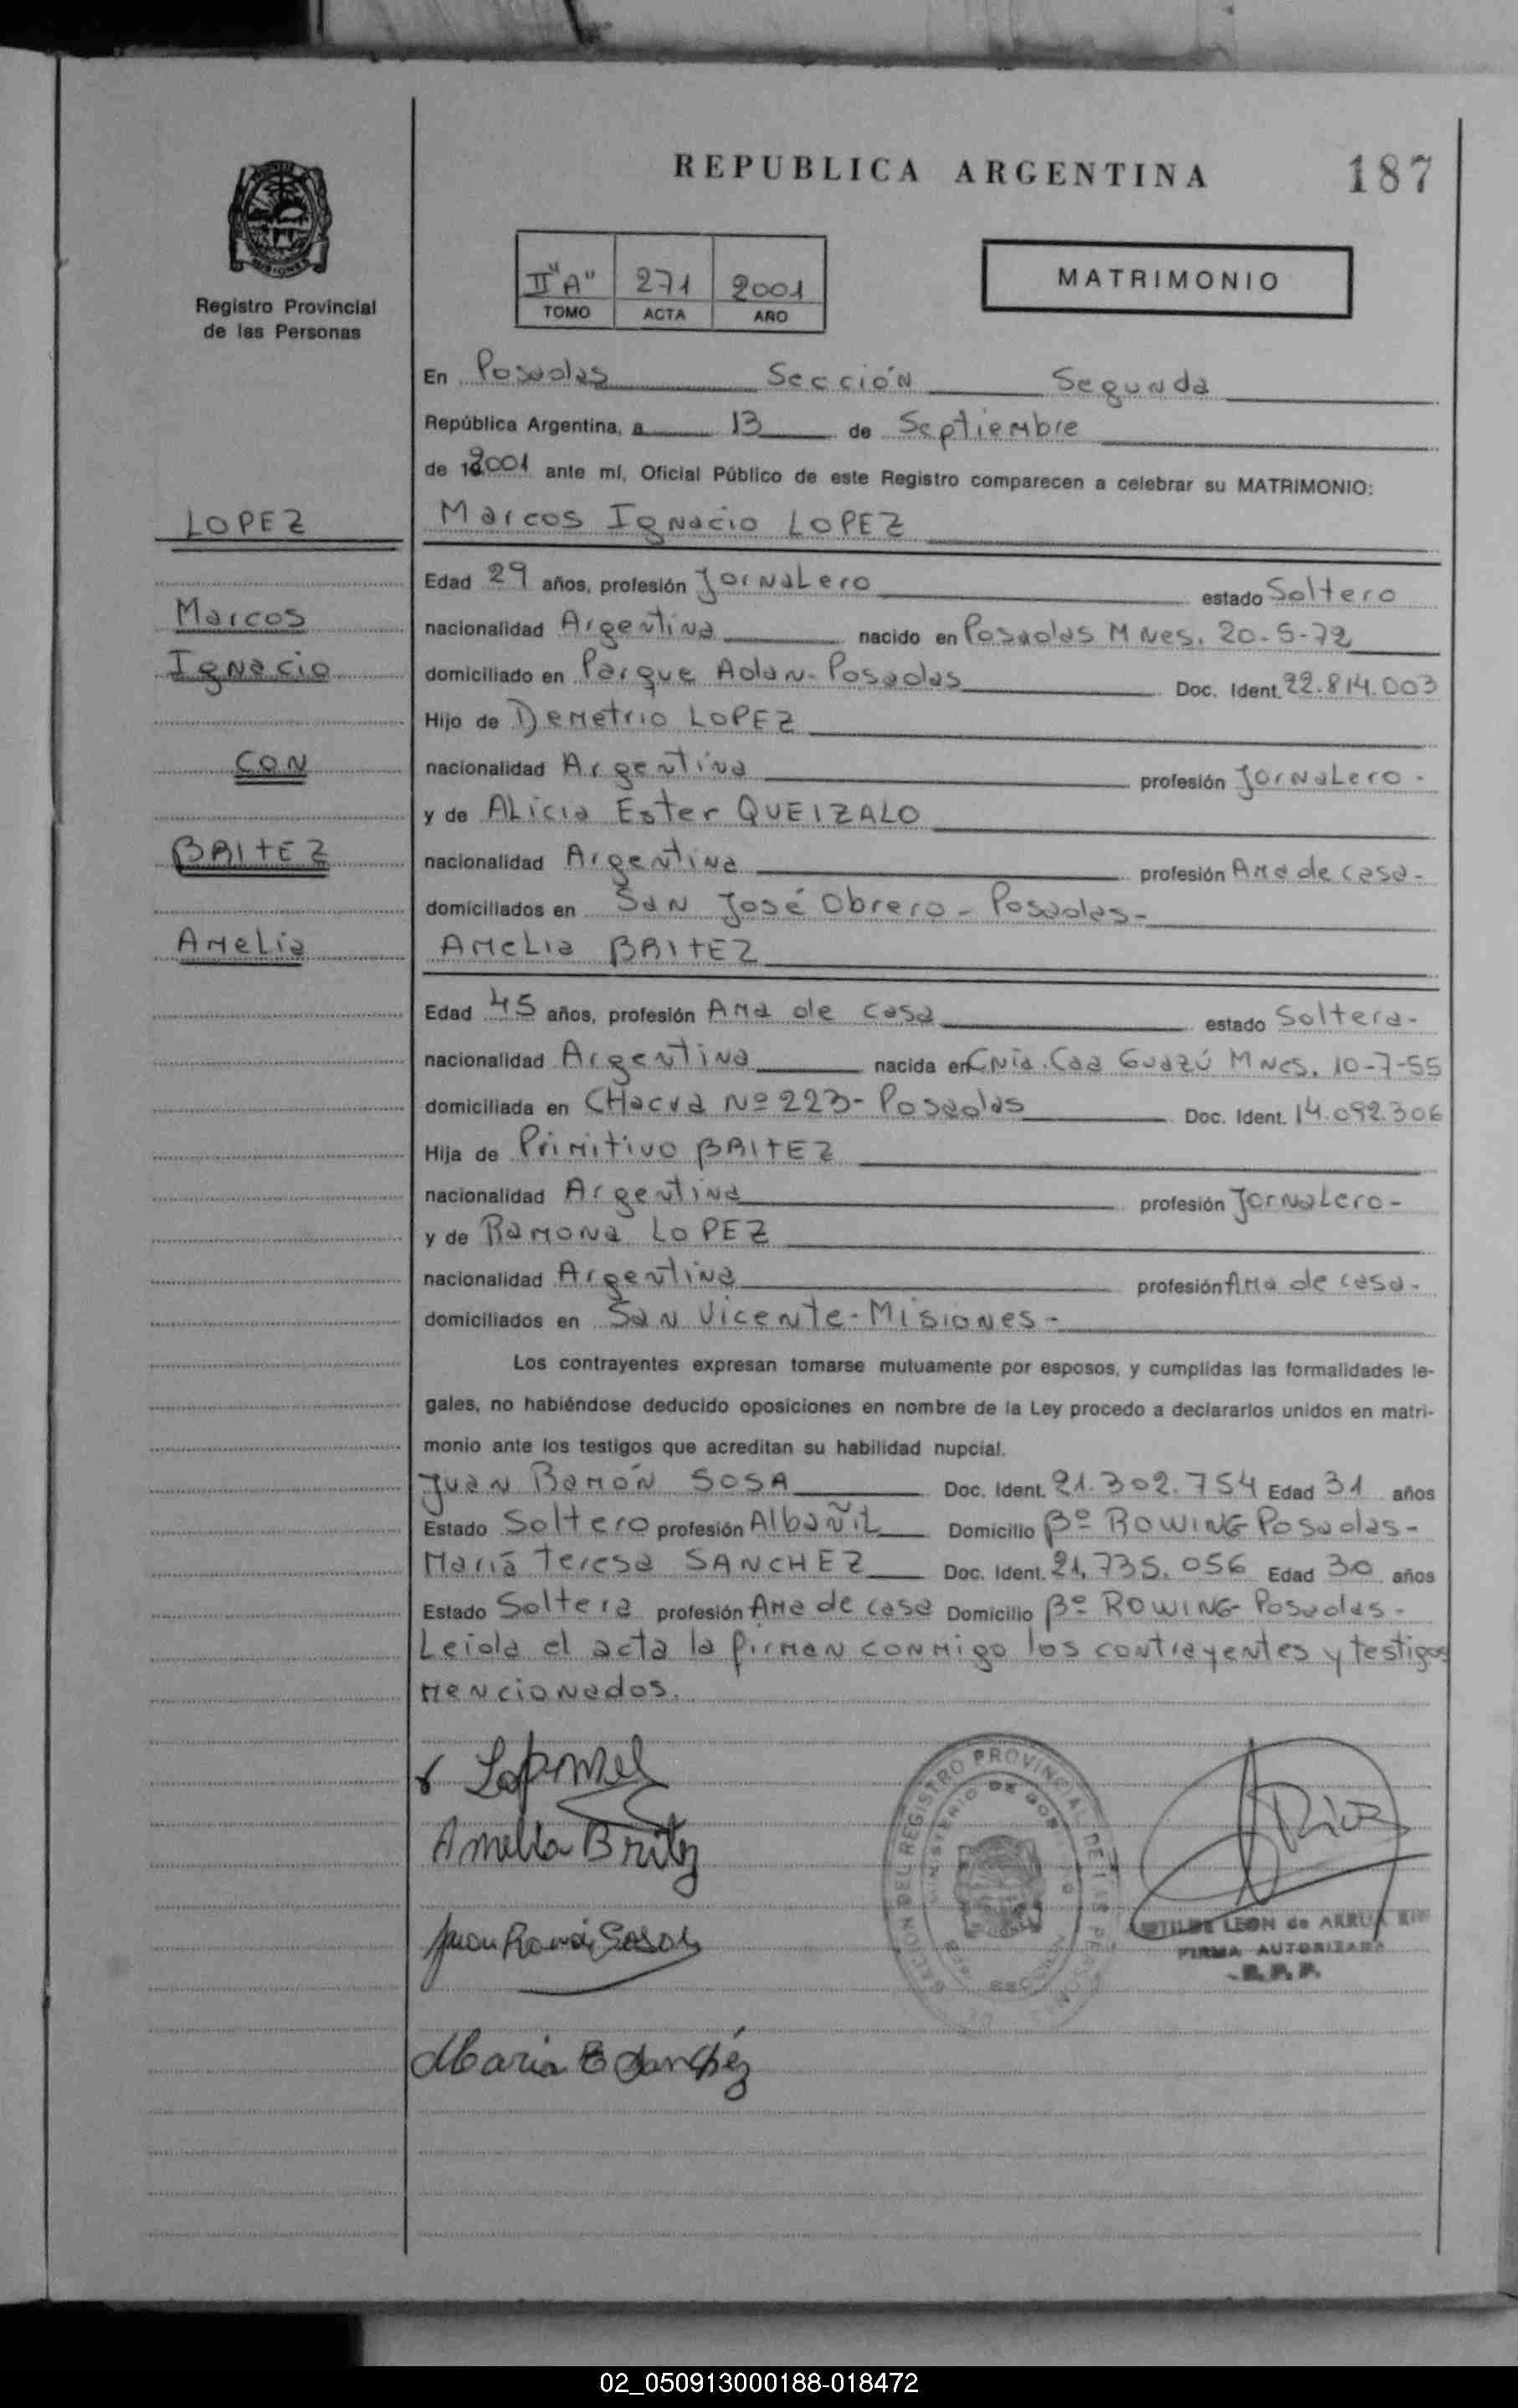 REPUBLICA ARGENTINA
187
MISIONES
Registro Provincial
de las Personas
II "A" 271 2001
TOMO ACTA AÑO
MATRIMONIO
En Posadas Sección Segunda
República Argentina, a 13 de Septiembre
de 2001 ante mí, Oficial Público de este Registro comparecen a celebrar su MATRIMONIO:
LOPEZ
Marcos Ignacio LOPEZ
Edad 29 años, profesión Jornalero estado Soltero
Marcos
nacionalidad Argentina nacido en Posadas Mnes. 20-5-72
Ignacio
domiciliado en Parque Adan - Posadas Doc. Ident. 22.814.003
Hijo de Demetrio LOPEZ
CON
nacionalidad Argentina profesión Jornalero -
y de Alicia Ester QUEIZALO
BRITEZ
nacionalidad Argentina profesión Ama de casa -
domiciliados en San José Obrero - Posadas -
Amelia
Amelia BRITEZ
Edad 45 años, profesión Ama de casa estado Soltera -
nacionalidad Argentina nacida en Cnia. Caa Guazú Mnes. 10-7-55
domiciliada en CHacra Nº 223 - Posadas Doc. Ident. 14.092.306
Hija de Primitivo BRITEZ
nacionalidad Argentina profesión Jornalero -
y de Ramona LOPEZ
nacionalidad Argentina profesión Ama de casa -
domiciliados en San Vicente - Misiones -
Los contrayentes expresan tomarse mutuamente por esposos, y cumplidas las formalidades le-
gales, no habiéndose deducido oposiciones en nombre de la Ley procedo a declararlos unidos en matri-
monio ante los testigos que acreditan su habilidad nupcial.
Juan Ramón SOSA Doc. Ident. 21.302.754 Edad 31 años
Estado Soltero profesión Albañil Domicilio Bº ROWING Posadas -
María Teresa SANCHEZ Doc. Ident. 21.735.056 Edad 30 años
Estado Soltera profesión Ama de casa Domicilio Bº ROWING - Posadas -
Leida el acta la firman conmigo los contrayentes y testigos
mencionados.
Amelia Britez
Juan Ramón Sosa
Maria T Sanchéz
DEL REGISTRO PROVINCIAL DE LAS PERSONAS
MINISTERIO DE
LEON de ARRUA
FIRMA AUTORIZADA
R. P. P.
02_050913000188-018472